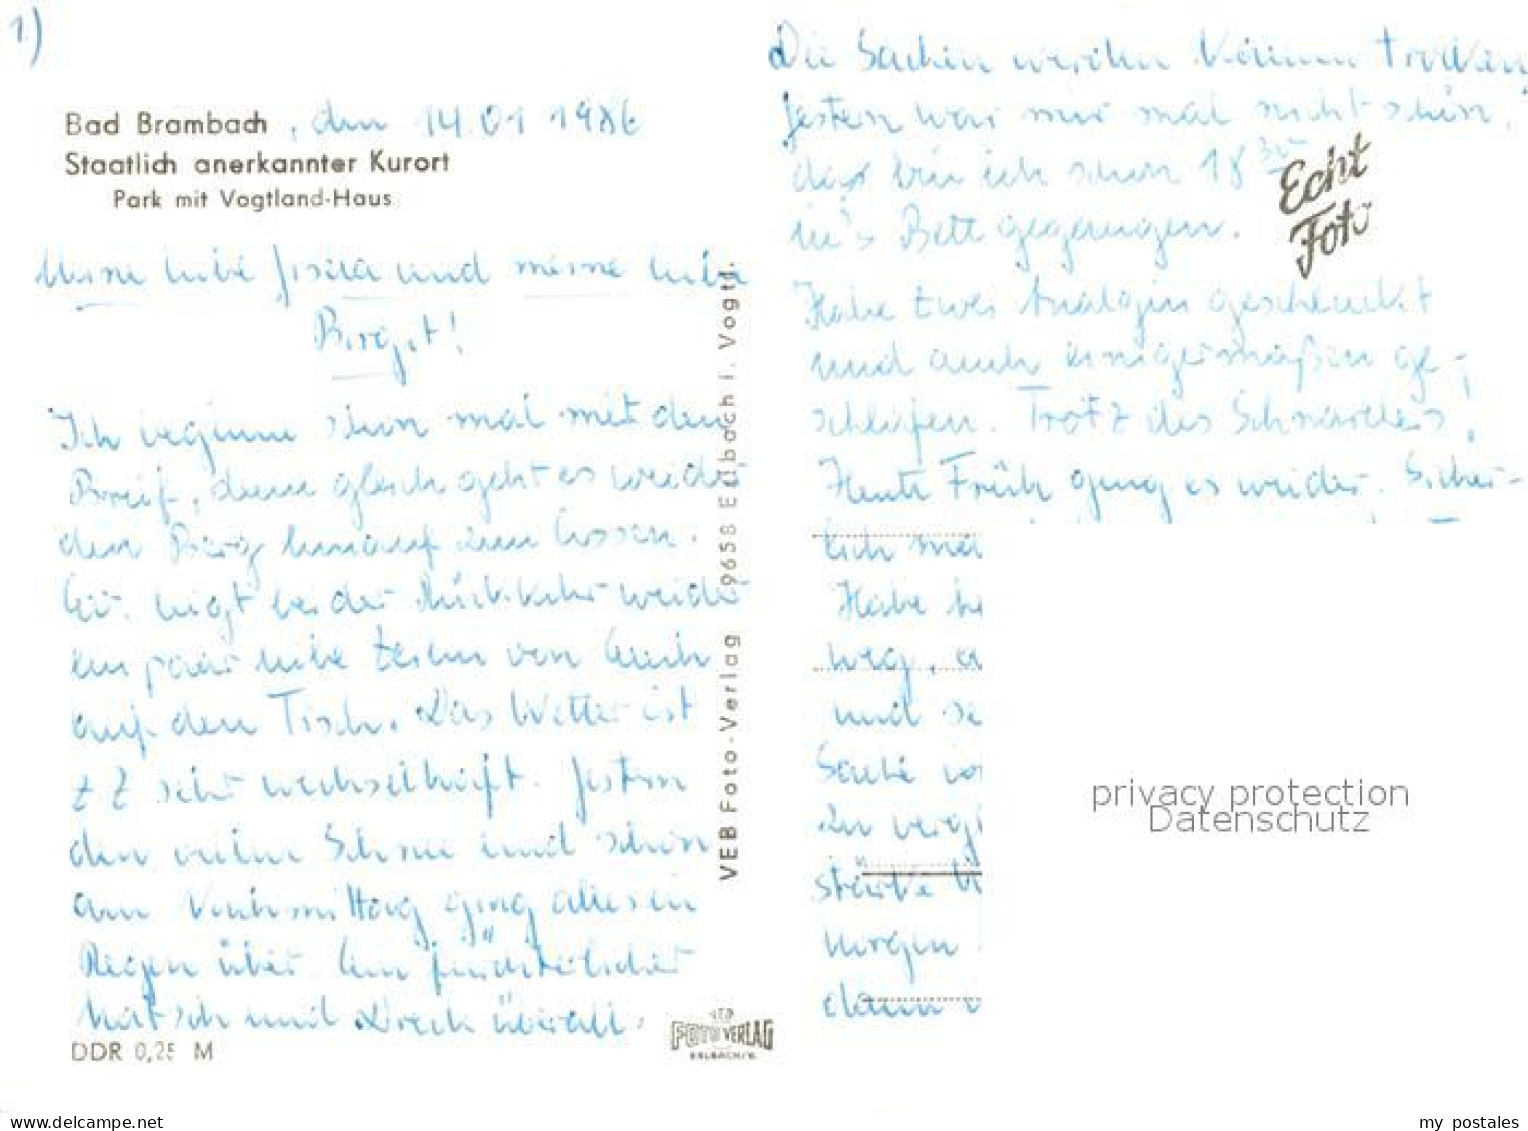 1)
Bad Brambach, den 14.01 1986
Staatlich anerkannter Kurort
Park mit Vogtland-Haus
Meine liebe Gisela und meine liebe
Birgit!
Ich beginne schon mal mit dem
Brief, denn gleich geht es wieder
den Berg hinauf zum Essen.
liegt bei der Rückkehr wieder
ein paar liebe Zeilen von Euch
auf dem Tisch. Das Wetter ist
z Z sehr wechselhaft. Gestern
den vielen Schnee und schon
am Nachmittag ging alles in
Regen über. Ein fürchterlicher
Matsch und Dreck überall.
DDR 0,25 M
VEB Foto-Verlag 9658 Erlbach i. Vogtl.
FOTO VERLAG
ERLBACH/V.
Die Sachen werden kaum trocken
Gestern war mir mal nicht schön,
da bin ich schon 18 30
in's Bett gegangen.
Habe zwei Analgin geschluckt
und auch einigermaßen ge-
schlafen. Trotz des Schnarchens,
Heute Früh ging es wieder. Sicher-
lich
Habe
weg,
und
zu
stärke
morgen
dann
Echt
Foto
privacy protection
Datenschutz
www.delcampe.net
my_postales